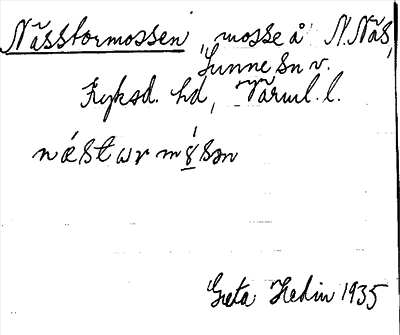 Nässtormossen, mosse å N. Näs,
Sunne sn v.
Fryksd. hd, Värml. l.
nǽstωr mø̀sən
Greta Hedin 1935